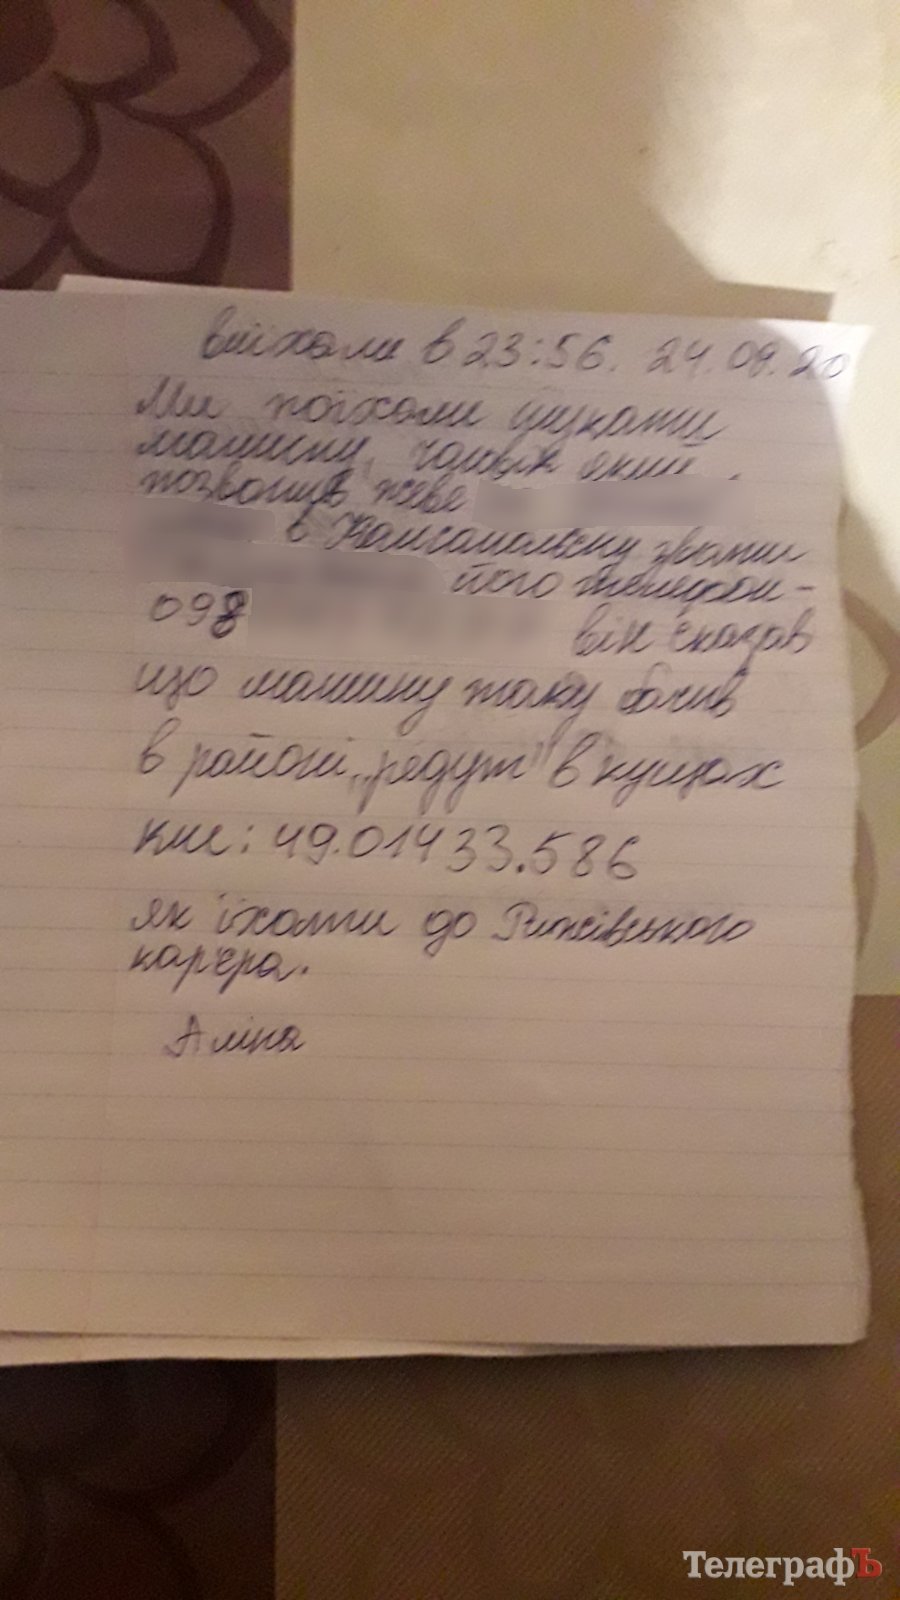 виїхали в 23:56. 24.09.20
Ми поїхали шукати
машину, чоловік який
позвонив живе
в Комсомольську звати
його телефон -
098 він сказав
що машину таку бачив
в районі "редут" в кущах
км: 49.01433.586
як їхати до Рижівського
кар'єра.
Аліна
ТелеграфЪ